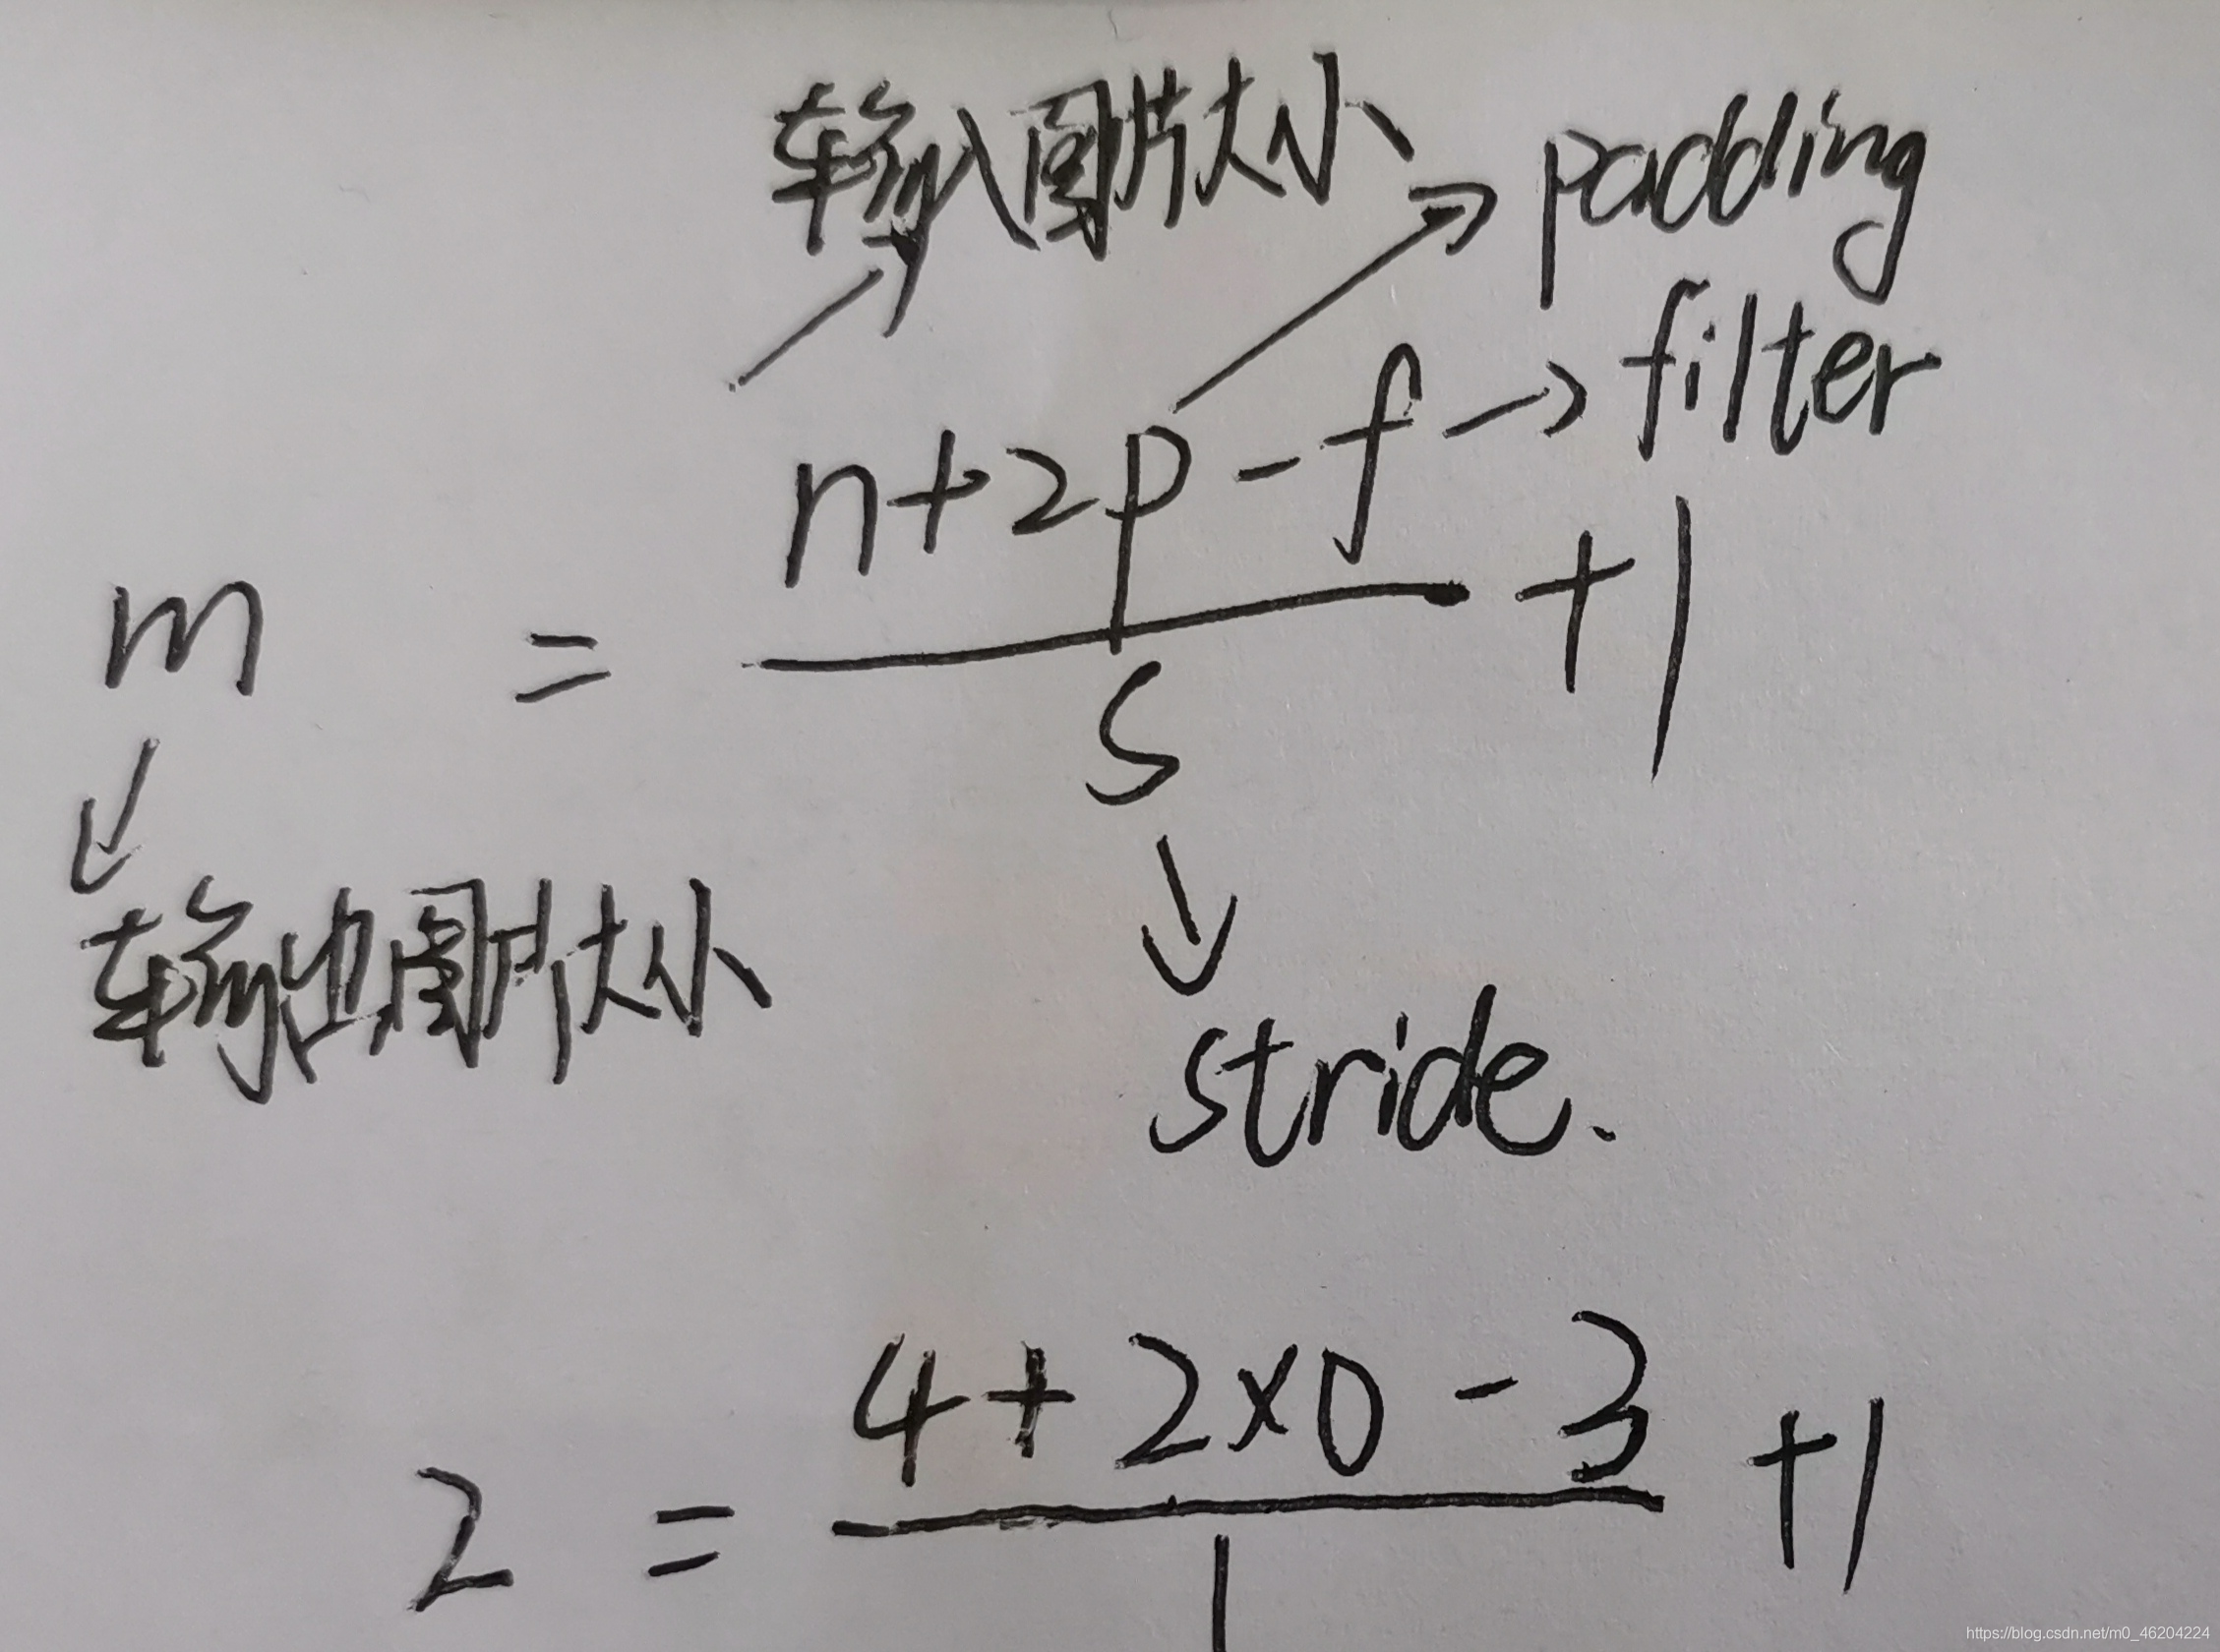 输入图片大小
padding
filter
m = (n+2p-f)/s +1
输出图片大小
stride.
2 = (4+2×0-3)/1 +1
https://blog.csdn.net/m0_46204224